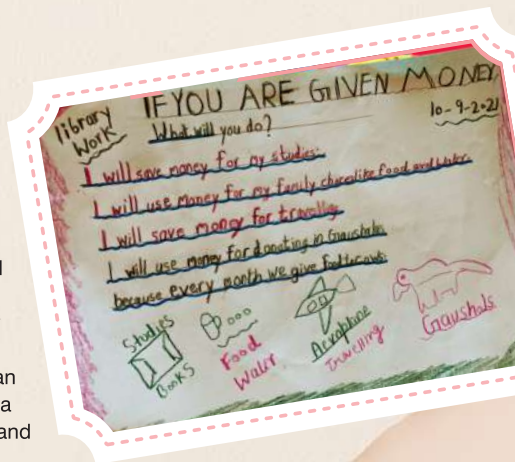 library
Work
IF YOU ARE GIVEN MONEY
10-9-2021
What will you do?
I will save money for my studies.
I will use money for my family like food and water.
I will save money for travelling
I will use money for donating in Gaushala
because every month we give food to cows.
Studies
Books
Food
Water
Aeroplane
Travelling
Gaushals
an
a
and